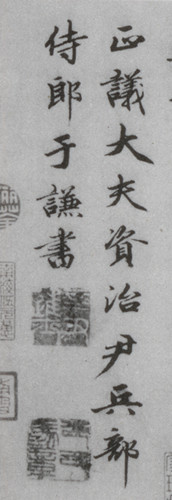 正議大夫資治尹兵部
侍郎于謙書